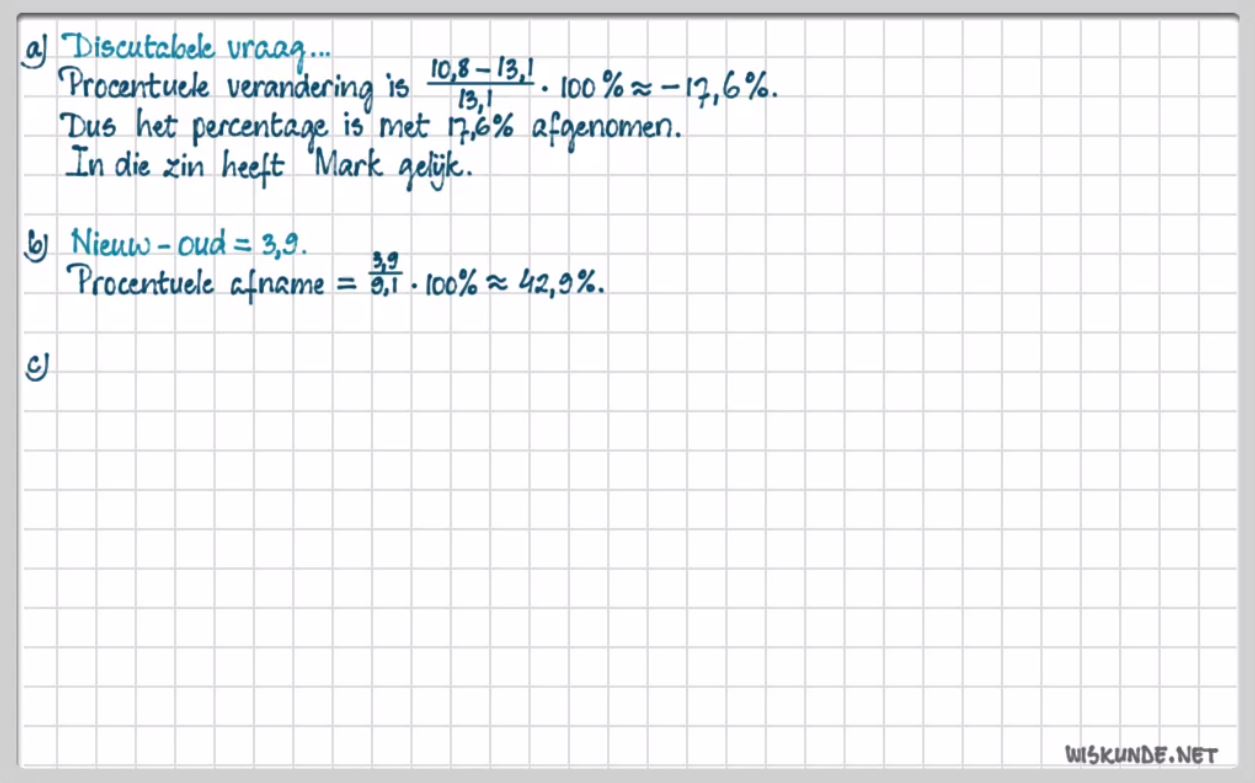 a) Discutabele vraag...
Procentuele verandering is (10,8 – 13,1)/13,1 · 100% ≈ –17,6%.
Dus het percentage is met 17,6% afgenomen.
In die zin heeft Mark gelijk.
b) Nieuw – oud = 3,9.
Procentuele afname = 3,9/9,1 · 100% ≈ 42,9%.
c)
WISKUNDE.NET